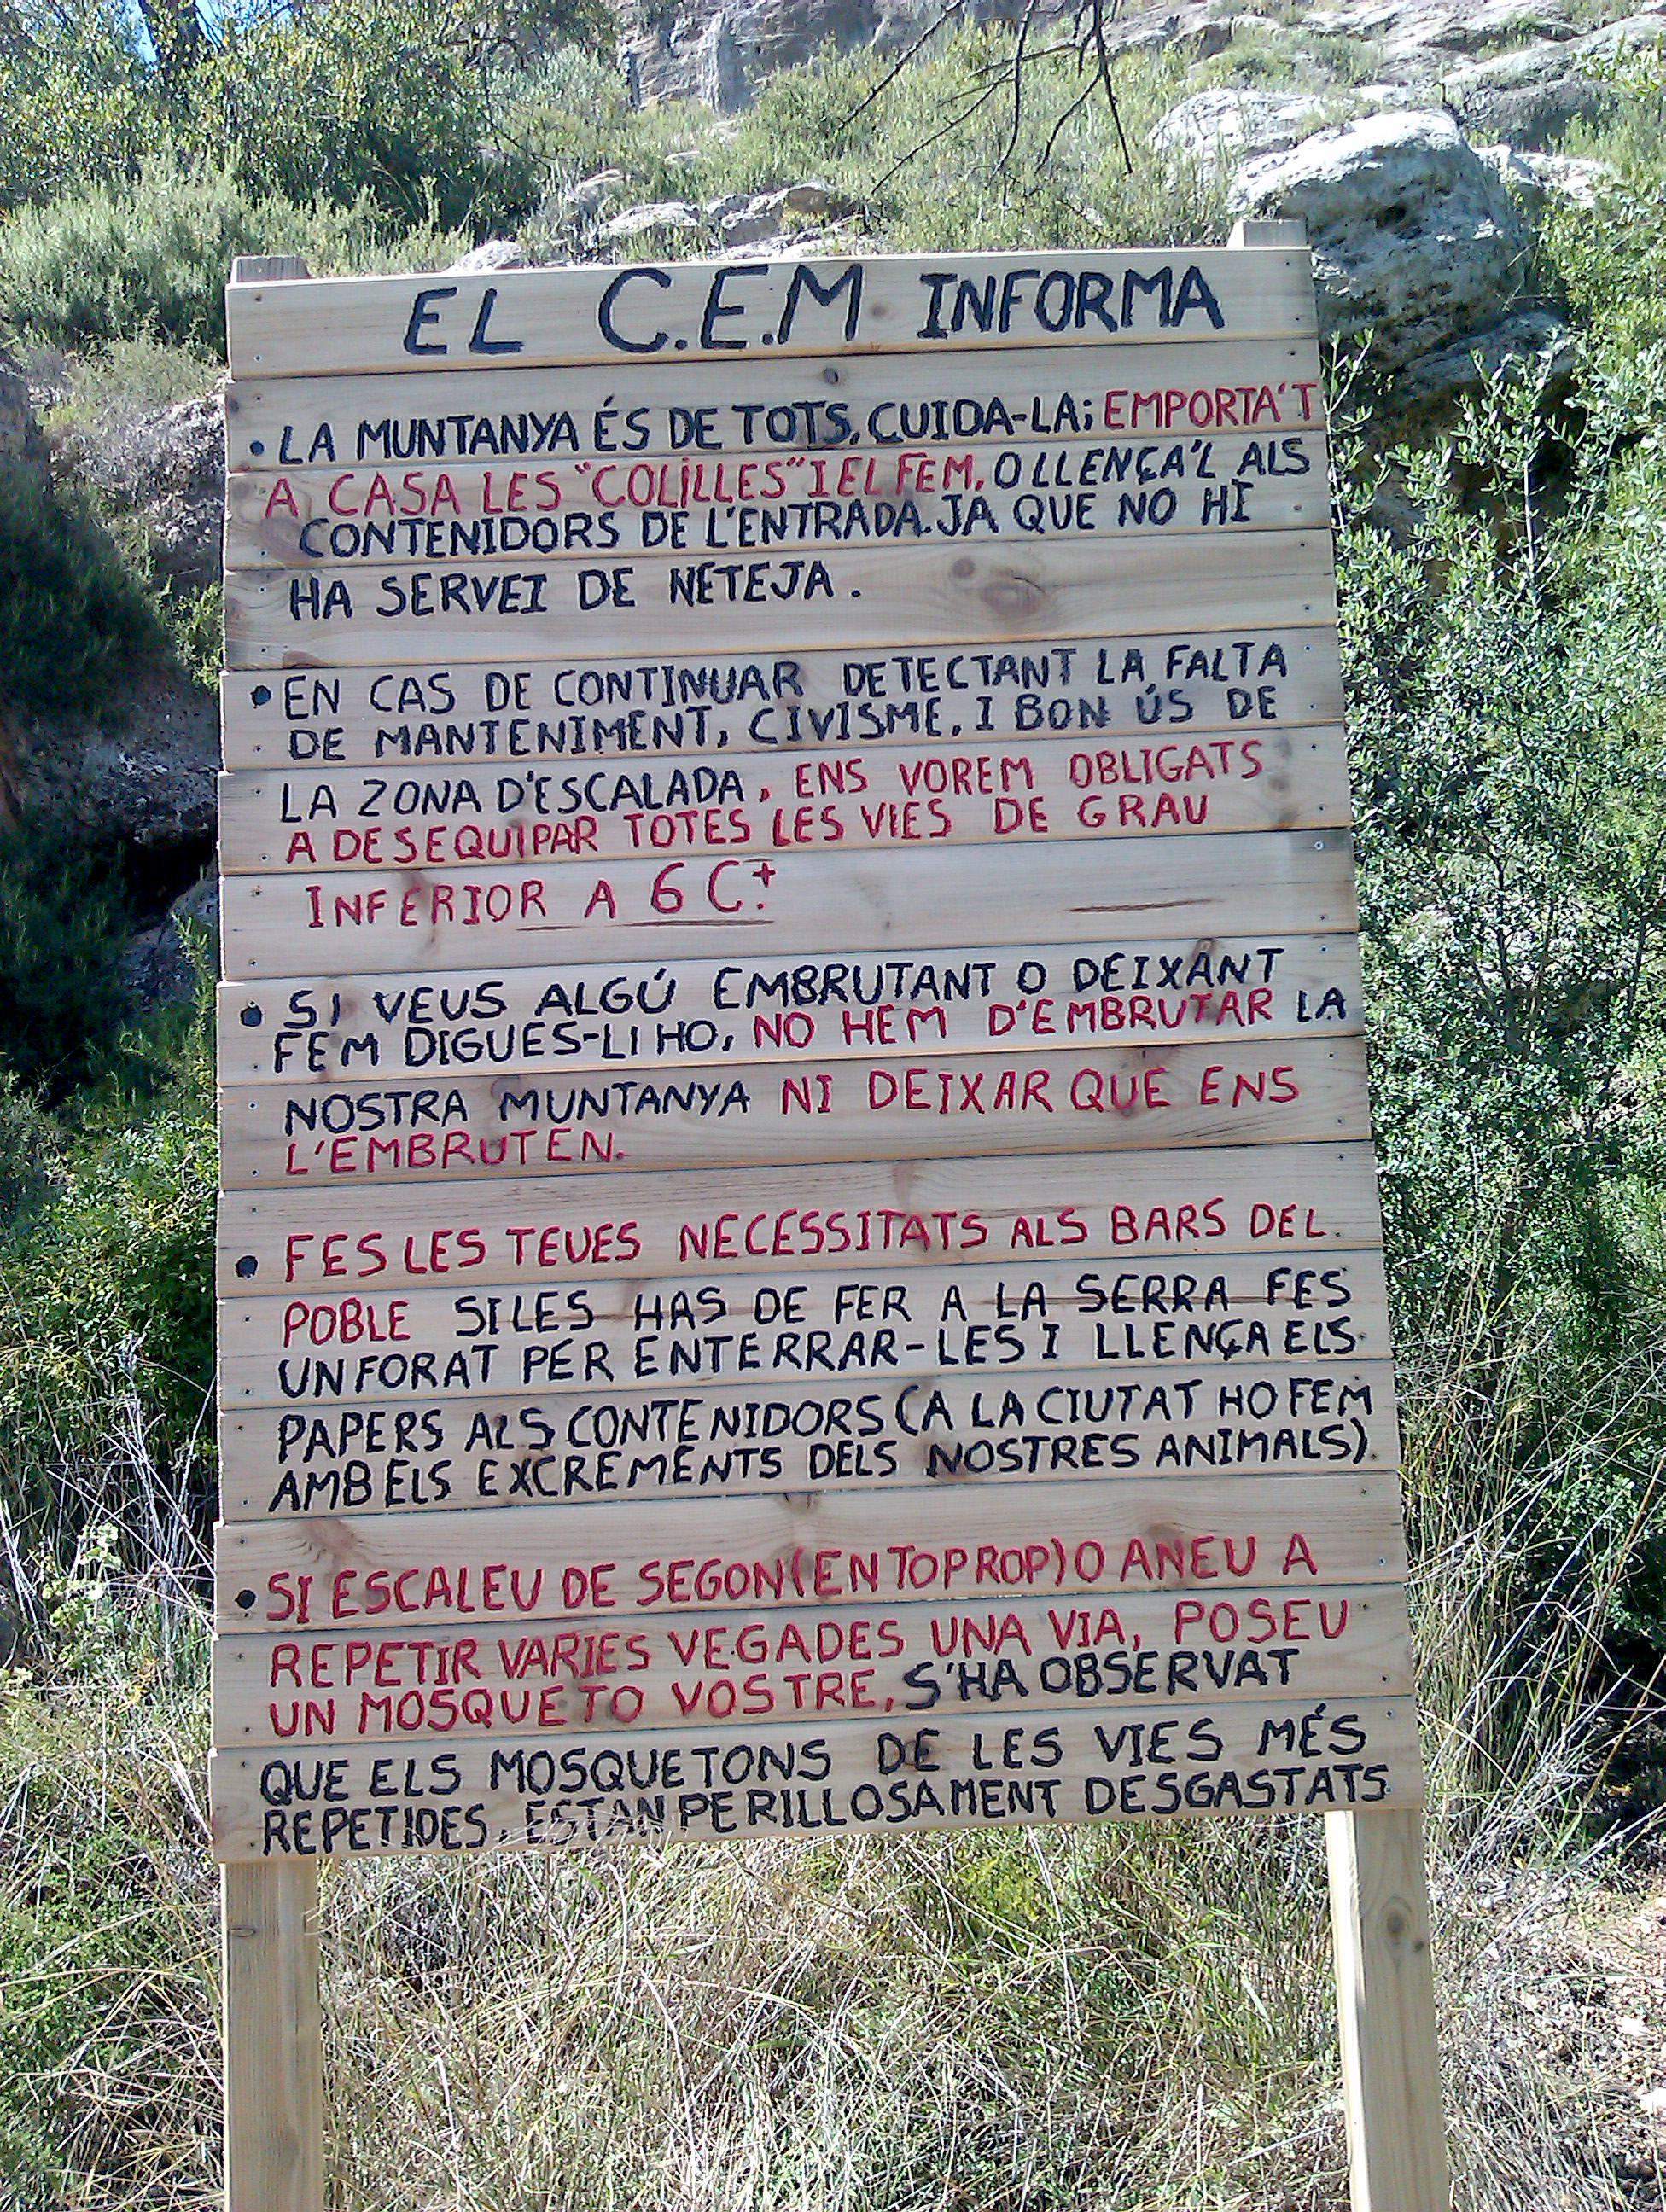 EL C.E.M INFORMA
• LA MUNTANYA ÉS DE TOTS, CUIDA-LA; EMPORTA'T
A CASA LES "COLILLES" I EL FEM, O LLENÇA'L ALS
CONTENIDORS DE L'ENTRADA. JA QUE NO HI
HA SERVEI DE NETEJA.
• EN CAS DE CONTINUAR DETECTANT LA FALTA
DE MANTENIMENT, CIVISME, I BON ÚS DE
LA ZONA D'ESCALADA, ENS VOREM OBLIGATS
A DESEQUIPAR TOTES LES VIES DE GRAU
INFERIOR A 6C+.
• SI VEUS ALGÚ EMBRUTANT O DEIXANT
FEM DIGUES-LI HO, NO HEM D'EMBRUTAR LA
NOSTRA MUNTANYA NI DEIXAR QUE ENS
L'EMBRUTEN.
• FES LES TEUES NECESSITATS ALS BARS DEL
POBLE SI LES HAS DE FER A LA SERRA FES
UN FORAT PER ENTERRAR-LES I LLENÇA ELS
PAPERS ALS CONTENIDORS (A LA CIUTAT HO FEM
AMB ELS EXCREMENTS DELS NOSTRES ANIMALS).
• SI ESCALEU DE SEGON (EN TOP ROP) O ANEU A
REPETIR VARIES VEGADES UNA VIA, POSEU
UN MOSQUETO VOSTRE, S'HA OBSERVAT
QUE ELS MOSQUETONS DE LES VIES MÉS
REPETIDES, ESTAN PERILLOSAMENT DESGASTATS